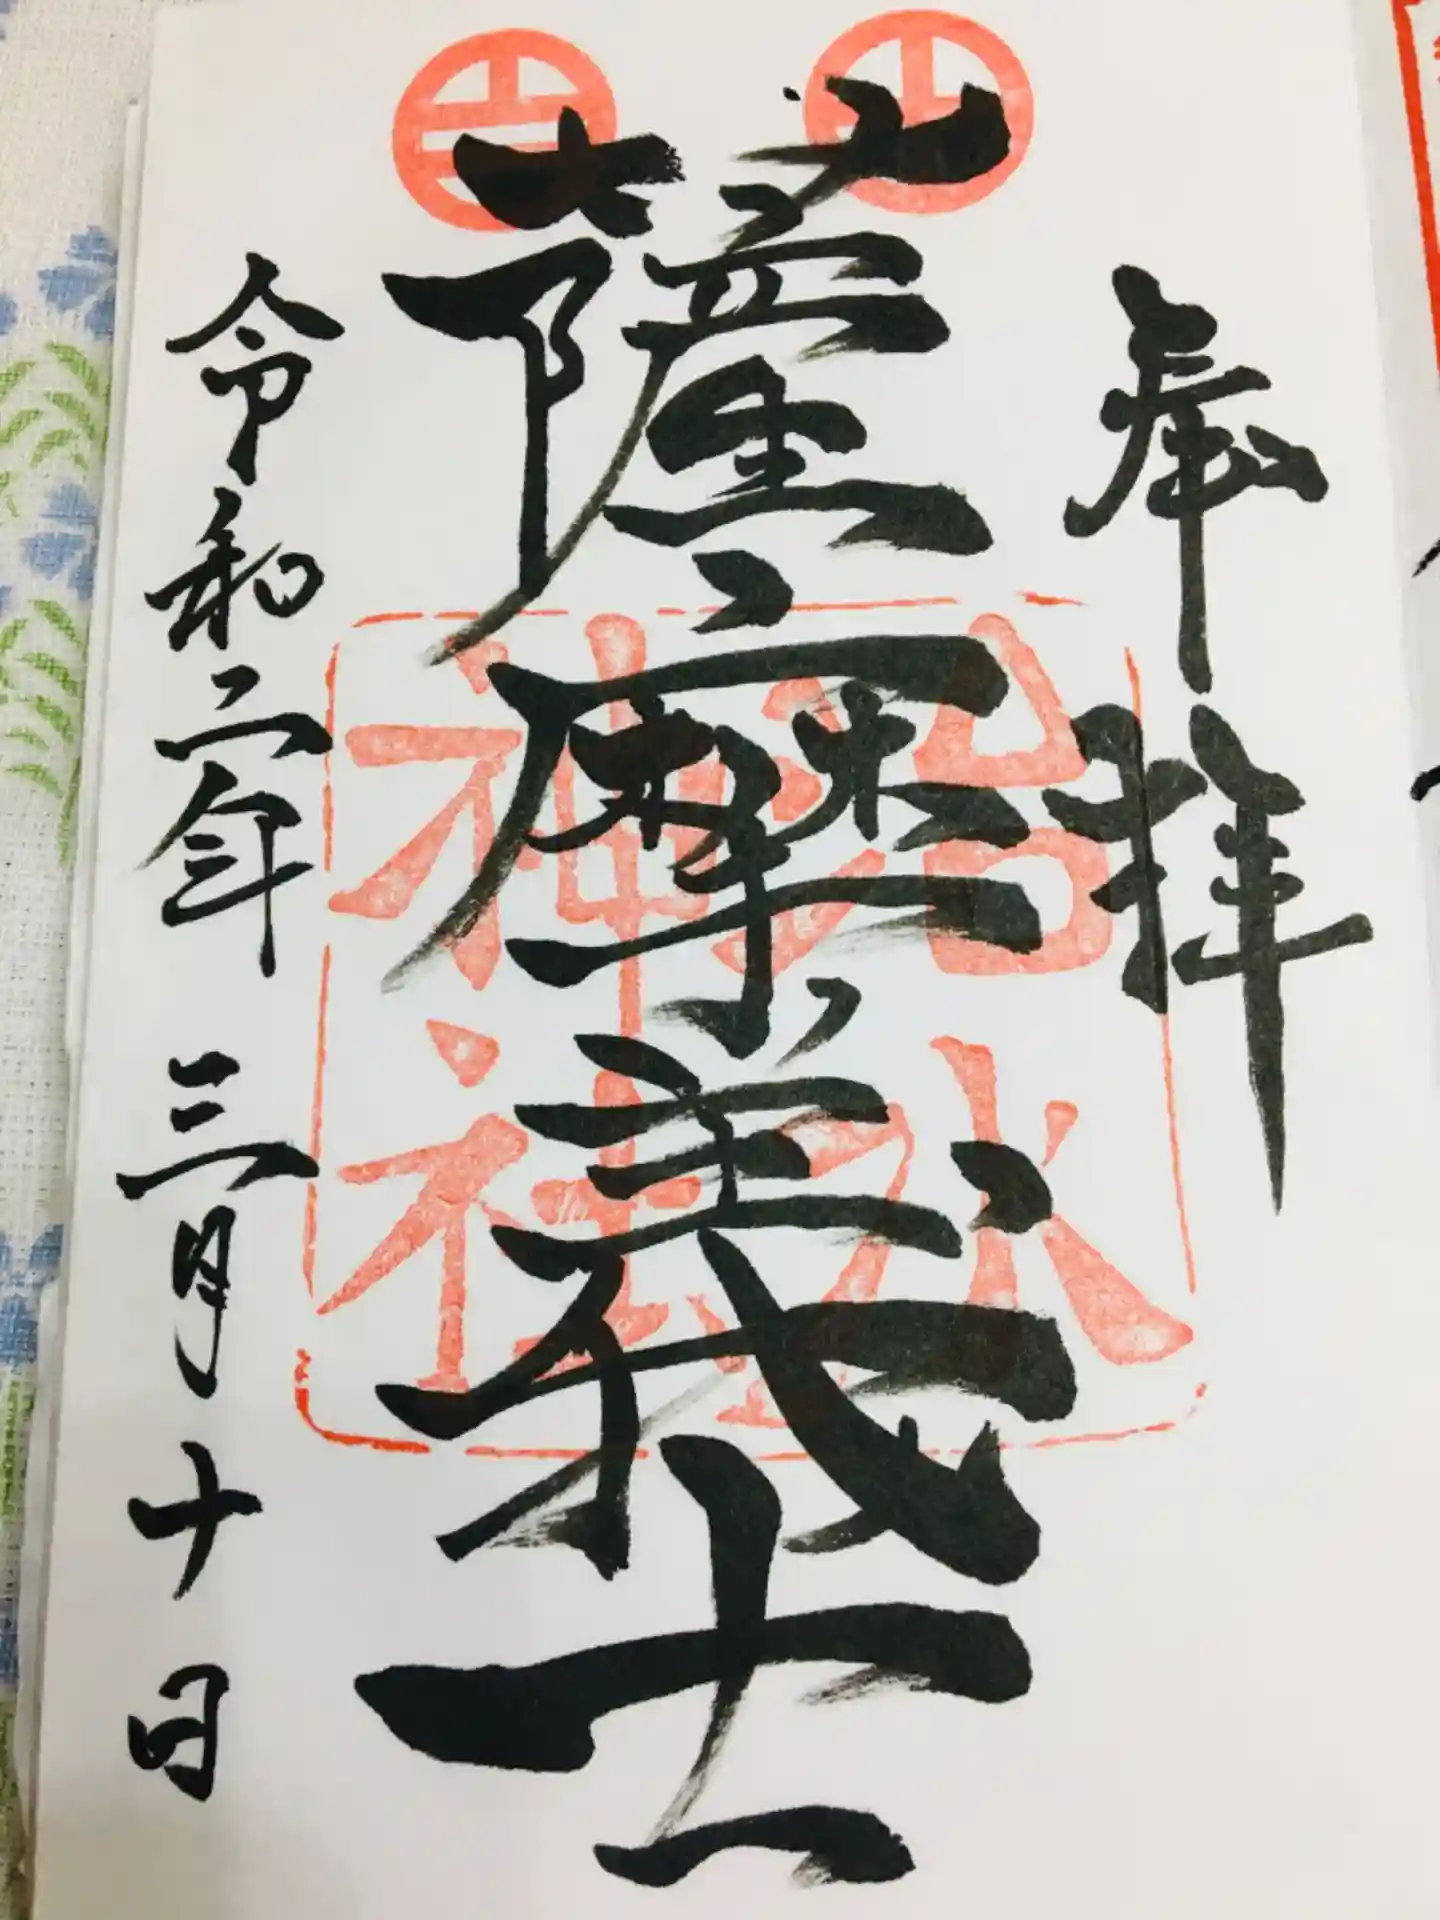 奉拝
薩摩義士
治水
神社
令和二年 三月十日